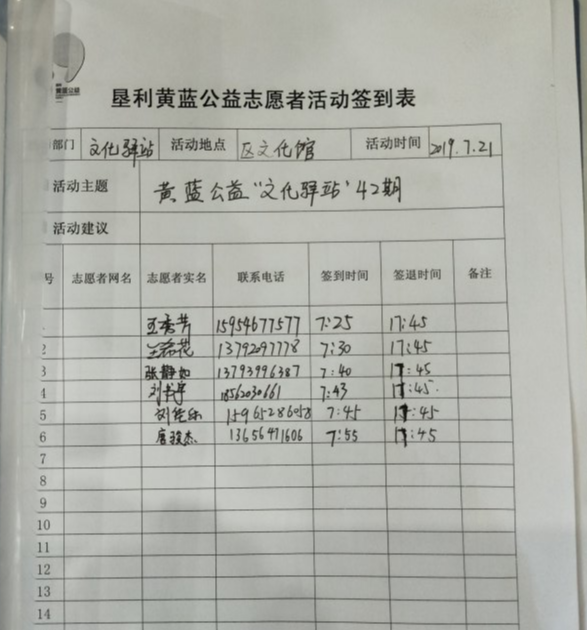 黄蓝公益
垦利黄蓝公益志愿者活动签到表
部门 文化驿站 活动地点 区文化馆 活动时间 2019.7.21
活动主题 黄蓝公益“文化驿站”42期
活动建议
号 志愿者网名 志愿者实名 联系电话 签到时间 签退时间 备注
1 王秀芳 15954677577 7:25 17:45
2 兰希花 13792097778 7:30 17:45
3 张静如 13793996387 7:40 17:45
4 7:43 17:45
5 15965286058 7:45 17:45
6 唐骏杰 13656471606 7:55 17:45
7
8
9
10
11
12
13
14